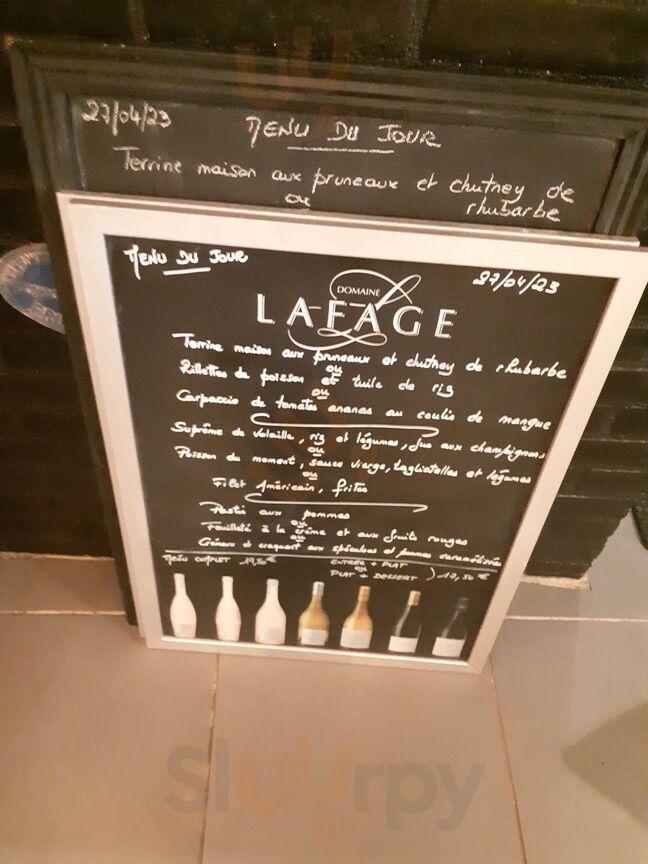 27/04/23
MENU DU JOUR
Terrine maison aux pruneaux et chutney de
ou
rhubarbe
MENU DU JOUR
27/04/23
DOMAINE
LAFAGE
Terrine maison aux pruneaux et chutney de rhubarbe
ou
Rillettes de poisson et tuile de riz
ou
Carpaccio de tomates ananas au coulis de mangue
Suprême de Volaille, riz et légumes, jus aux champignons
ou
Poisson du moment, sauce vierge, tagliatelles et légumes
ou
Filet Américain, frites
Pastis aux pommes
ou
Feuilleté à la crème et aux fruits rouges
ou
et craquant aux spéculoos et pommes caramélisées
MENU COMPLET 19,50€
ENTRÉE + PLAT
ou
PLAT + DESSERT ) 17,50 €
Sluurpy